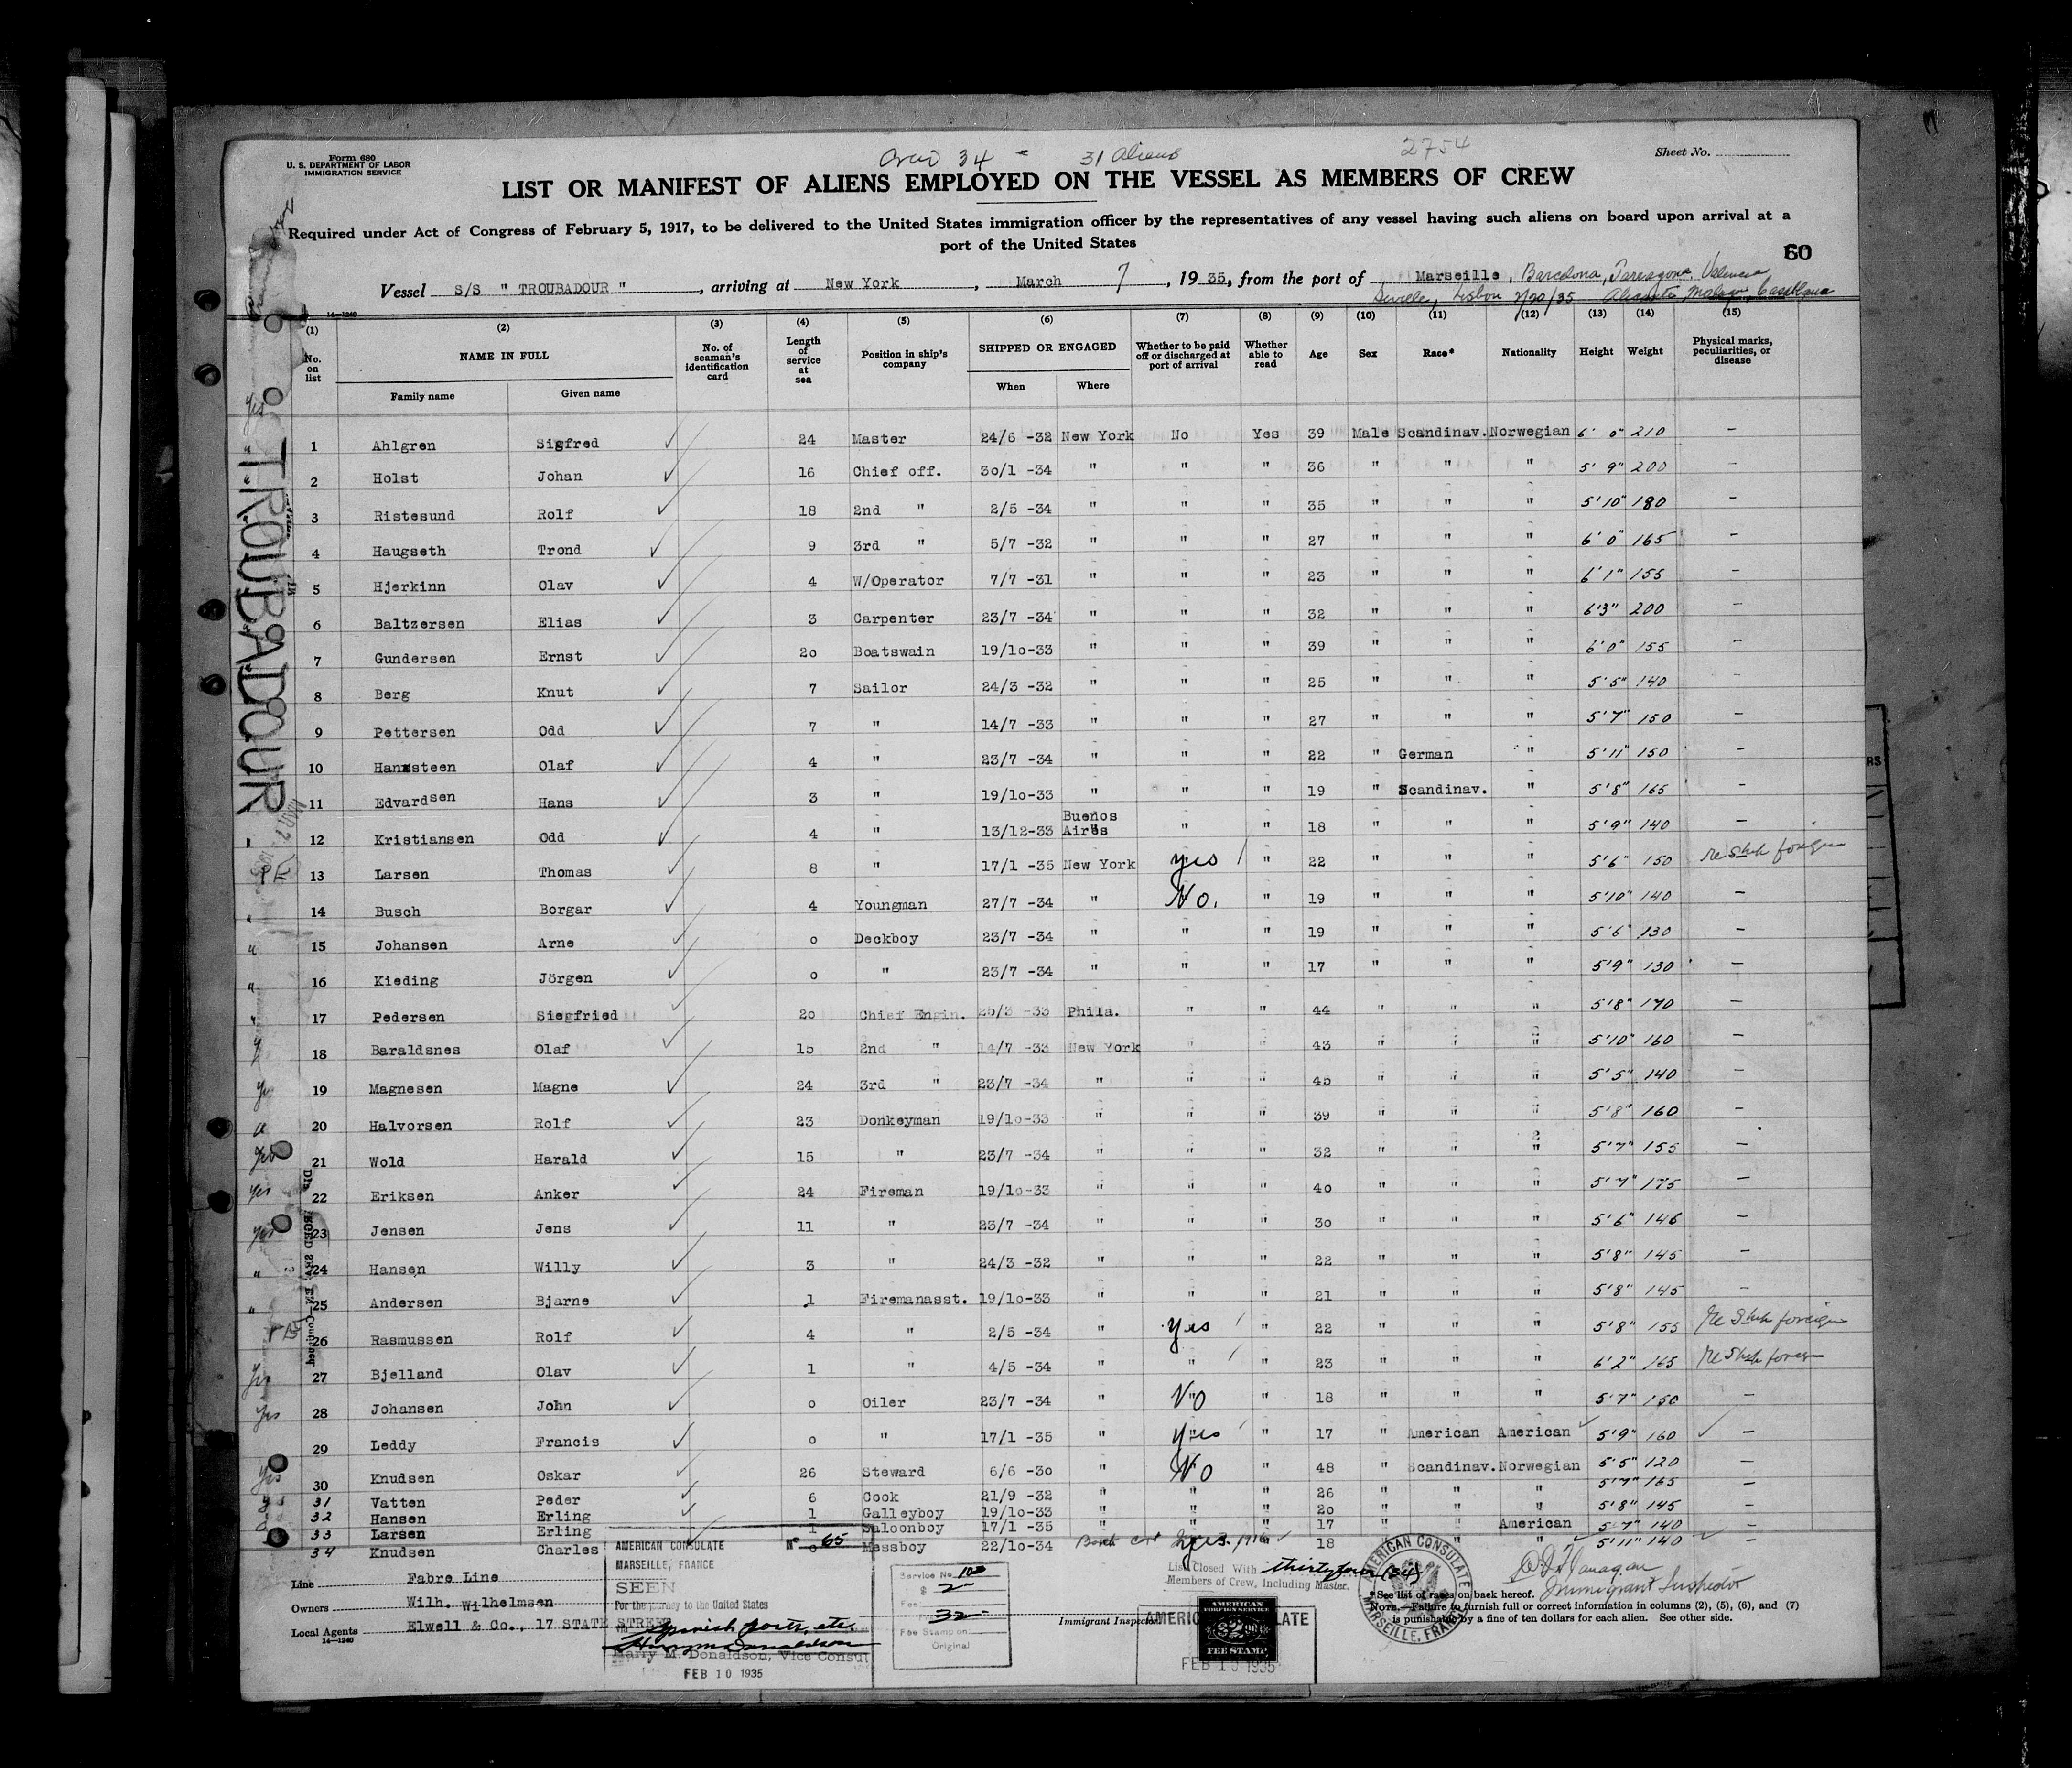 Form 680
U. S. DEPARTMENT OF LABOR
IMMIGRATION SERVICE
Crew 34 - 31 Aliens
2754
Sheet No.
LIST OR MANIFEST OF ALIENS EMPLOYED ON THE VESSEL AS MEMBERS OF CREW
Required under Act of Congress of February 5, 1917, to be delivered to the United States immigration officer by the representatives of any vessel having such aliens on board upon arrival at a
port of the United States
60
Vessel S/S " TROUBADOUR ", arriving at New York, March 7, 1935, from the port of Marseille, Barcelona, Tarragona, Valencia
Seville, Lisbon 2/20/35 Alicante, Malaga, Casablanca
14—1240
(1) (2) (3) (4) (5) (6) (7) (8) (9) (10) (11) (12) (13) (14) (15)
No. on list NAME IN FULL No. of seaman's identification card Length of service at sea Position in ship's company SHIPPED OR ENGAGED Whether to be paid off or discharged at port of arrival Whether able to read Age Sex Race* Nationality Height Weight Physical marks, peculiarities, or disease
Family name Given name When Where
TROUBADOUR
1 Ahlgren Sigfred ✓ 24 Master 24/6 -32 New York No Yes 39 Male Scandinav. Norwegian 6' 0" 210 —
2 Holst Johan ✓ 16 Chief off. 30/1 -34 " " " 36 " " " 5' 9" 200 —
3 Ristesund Rolf ✓ 18 2nd " 2/5 -34 " " " 35 " " " 5'10" 180 —
4 Haugseth Trond ✓ 9 3rd " 5/7 -32 " " " 27 " " " 6'0" 165 —
5 Hjerkinn Olav ✓ 4 W/Operator 7/7 -31 " " " 23 " " " 6'1" 155 —
6 Baltzersen Elias ✓ 3 Carpenter 23/7 -34 " " " 32 " " " 6'3" 200 —
7 Gundersen Ernst ✓ 20 Boatswain 19/10-33 " " " 39 " " " 6'0" 155 —
8 Berg Knut ✓ 7 Sailor 24/3 -32 " " " 25 " " " 5'5" 140 —
9 Pettersen Odd ✓ 7 " 14/7 -33 " " " 27 " " " 5'7" 150 —
10 Hansteen Olaf ✓ 4 " 23/7 -34 " " " 22 " German " 5'11" 150 —
11 Edvardsen Hans ✓ 3 " 19/10-33 " " " 19 " Scandinav. " 5'8" 165 —
12 Kristiansen Odd ✓ 4 " 13/12-33 Buenos Aires " " 18 " " " 5'9" 140 —
13 Larsen Thomas ✓ 8 " 17/1 -35 New York yes " 22 " " " 5'6" 150 Re Ship foreign
14 Busch Borgar ✓ 4 Youngman 27/7 -34 " No. " 19 " " " 5'10" 140 —
15 Johansen Arne ✓ 0 Deckboy 23/7 -34 " " " 19 " " " 5'6" 130 —
16 Kieding Jörgen ✓ 0 " 23/7 -34 " " " 17 " " " 5'9" 130 —
17 Pedersen Siegfried ✓ 20 Chief Engin. 25/3 -33 Phila. " " 44 " " " 5'8" 170 —
18 Baraldsnes Olaf ✓ 15 2nd " 14/7 -33 New York " " 43 " " " 5'10" 160 —
19 Magnesen Magne ✓ 24 3rd " 23/7 -34 " " " 45 " " " 5'5" 140 —
20 Halvorsen Rolf ✓ 23 Donkeyman 19/10-33 " " " 39 " " " 5'8" 160 —
21 Wold Harald ✓ 15 " 23/7 -34 " " " 32 " " " 5'7" 155 —
22 Eriksen Anker ✓ 24 Fireman 19/10-33 " " " 40 " " " 5'7" 175 —
23 Jensen Jens ✓ 11 " 23/7 -34 " " " 30 " " " 5'6" 146 —
24 Hansen Willy ✓ 3 " 24/3 -32 " " " 22 " " " 5'8" 145 —
25 Andersen Bjarne ✓ 1 Firemanasst. 19/10-33 " " " 21 " " " 5'8" 145 —
26 Rasmussen Rolf ✓ 4 " 2/5 -34 " Yes " 22 " " " 5'8" 155 Re Ship foreign
27 Bjelland Olav ✓ 1 " 4/5 -34 " " " 23 " " " 6'2" 165 Re Ship foreign
28 Johansen John ✓ 0 Oiler 23/7 -34 " No " 18 " " " 5'7" 150 —
29 Leddy Francis ✓ 0 " 17/1 -35 " yes " 17 " American American 5'9" 160 ✓ —
30 Knudsen Oskar ✓ 26 Steward 6/6 -30 " No " 48 " Scandinav. Norwegian 5'5" 120 —
31 Vatten Peder ✓ 6 Cook 21/9 -32 " " " 26 " " " 5'7" 165 —
32 Hansen Erling ✓ 1 Galleyboy 19/10-33 " " " 20 " " " 5'8" 145 —
33 Larsen Erling 1 Saloonboy 17/1 -35 " " " 17 " " American 5'7" 140 —
34 Knudsen Charles ✓ 0 Messboy 22/10-34 " 18 " " " 5'11" 140 —
Line Fabre Line
Owners Wilh. Wilhelmsen
Local Agents Elwell & Co., 17 STATE STREET
14—1240
AMERICAN CONSULATE Nº 65
MARSEILLE, FRANCE
SEEN
For the journey to the United States
via Spanish ports, etc.
Harry M. Donaldson
Harry M. Donaldson, Vice Consul
FEB 10 1935
Service No. 102
$ 2
Fee
32
Fee Stamp on
Original
List Closed With thirty four (34)
Members of Crew, Including Master.
Immigrant Inspector
AMERICAN CONSULATE
AMERICAN
FOREIGN SERVICE
FEE STAMP
FEB 10 1935
AMERICAN CONSULATE
MARSEILLE, FRANCE
Flanagan
Immigrant Inspector
*See list of races on back hereof.
NOTE.—Failure to furnish full or correct information in columns (2), (5), (6), and (7)
is punishable by a fine of ten dollars for each alien. See other side.